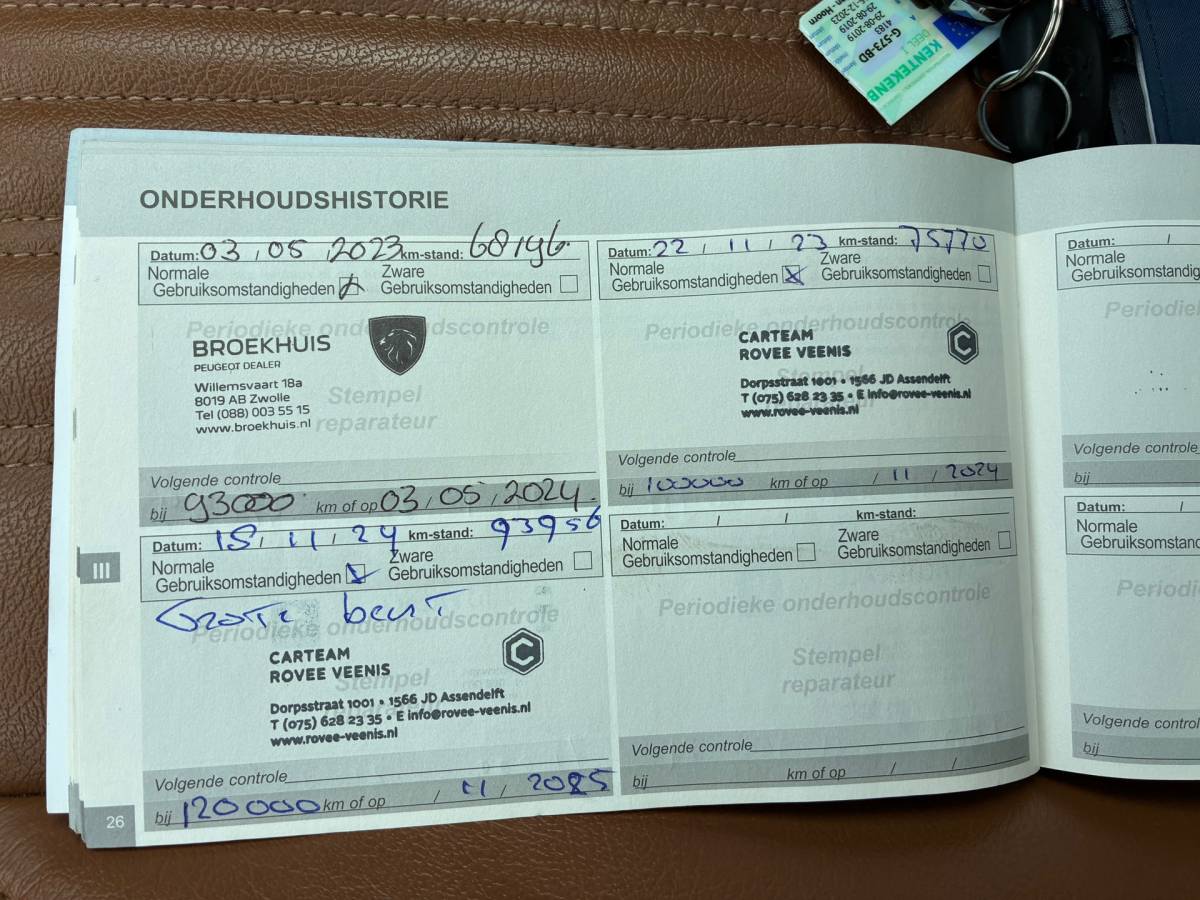 29-08-2019
29-08-2019
4183
G-573-BD
DEEL 1
KENTEKENB
ONDERHOUDSHISTORIE
Datum: 03 / 05 / 2023 km-stand: 68196
Normale Gebruiksomstandigheden Zware Gebruiksomstandigheden
Periodieke onderhoudscontrole
BROEKHUIS
PEUGEOT DEALER
Willemsvaart 18a
8019 AB Zwolle
Tel (088) 003 55 15
www.broekhuis.nl
Stempel
reparateur
Volgende controle
bij 93000 km of op 03 / 05 / 2024
Datum: 22 / 11 / 23 km-stand: 75770
Normale Gebruiksomstandigheden Zware Gebruiksomstandigheden
Periodieke onderhoudscontrole
CARTEAM
ROVEE VEENIS
Stempel
Dorpsstraat 1001 • 1566 JD Assendelft
T (075) 628 23 35 • E info@rovee-veenis.nl
www.rovee-veenis.nl
reparateur
Volgende controle
bij 100000 km of op / 11 / 2024
III
Datum: 18 / 11 / 24 km-stand: 93956
Normale Gebruiksomstandigheden Zware Gebruiksomstandigheden
Grote beurt
Periodieke onderhoudscontrole
CARTEAM
ROVEE VEENIS
Stempel
Dorpsstraat 1001 • 1566 JD Assendelft
T (075) 628 23 35 • E info@rovee-veenis.nl
www.rovee-veenis.nl
Volgende controle
bij 120000 km of op / 11 / 2025
Datum: / / km-stand:
Normale Gebruiksomstandigheden Zware Gebruiksomstandigheden
Periodieke onderhoudscontrole
Stempel
reparateur
Volgende controle
bij km of op / /
26
Datum: /
Normale
Gebruiksomstandig
Periodieke
Volgende controle
bij
Datum: /
Normale
Gebruiksomstand
Periodi
Volgende contro
bij